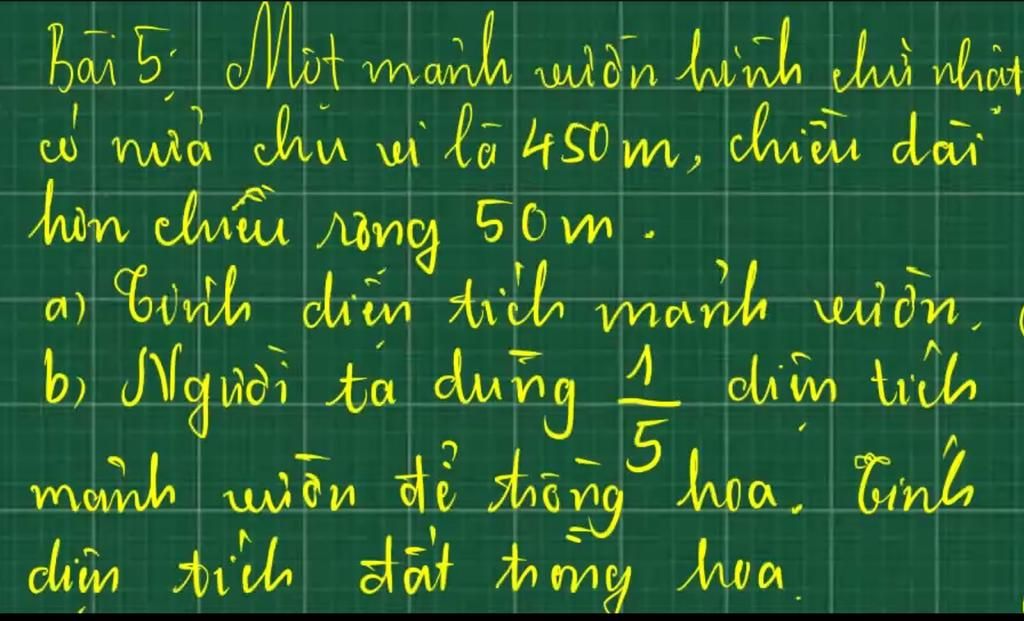 Bài 5: Một mảnh vườn hình chữ nhật
có nửa chu vi là 450 m, chiều dài
hơn chiều rộng 50 m.
a) Tính diện tích mảnh vườn.
b) Người ta dùng 1/5 diện tích
mảnh vườn để trồng hoa. Tính
diện tích đất trồng hoa.